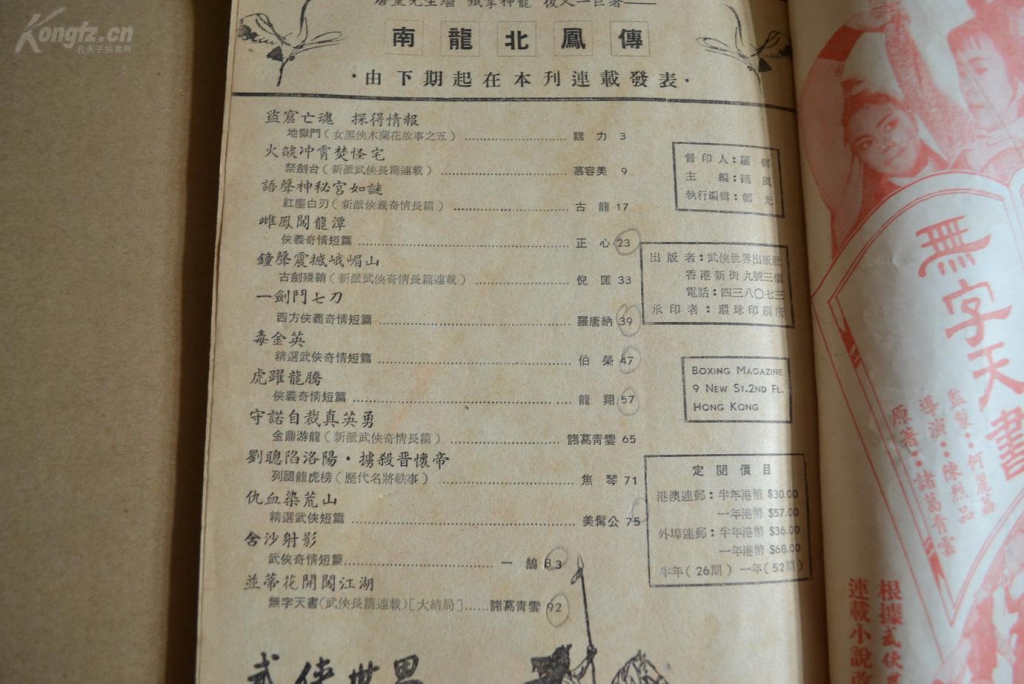 Kongfz.cn
孔夫子拍卖网
南龍北鳳傳
·由下期起在本刊連載發表·
盜窟亡魂 探得情報
地獄門(女黑俠木蘭花故事之五) 魏力 3
火燄冲霄焚怪宅
祭劍台(新派武俠長篇連載) 慕容美 9
語聲神秘宮如謎
紅塵白刃(新派俠義奇情長篇) 古龍 17
雌鳳闖龍潭
俠義奇情短篇 正心 23
鐘聲震撼峨嵋山
古劍殘鞘(新派武俠奇情長篇連載) 倪匡 33
一劍鬥七刀
西方俠義奇情短篇 羅唐納 39
毒金英
精選武俠奇情短篇 伯榮 47
虎躍龍騰
俠義奇情短篇 龍翔 57
守諾自裁真英勇
金鼎游龍(新派武俠奇情長篇) 諸葛青雲 65
劉聰陷洛陽·擄殺晋懷帝
列國龍虎榜(歷代名將軼事) 焦琴 71
仇血染荒山
精選武俠短篇 美髯公 75
含沙射影
武俠奇情短篇 一鵠 83
並蒂花開闖江湖
無字天書(武俠長篇連載)[大結局] 諸葛青雲 92
武俠世界
督印人:羅
主編:蹄風
執行編輯:鄭
出版者:武俠世界出版社
香港新街九號三樓
電話:四三八〇七三
承印者:環球印刷所
BOXING MAGAZINE
9 NEW ST. 2ND FL.
HONG KONG
定閱價目
港澳連郵:半年港幣$30.00
一年港幣$57.00
外埠連郵:半年港幣$36.00
一年港幣$68.00
半年(26期) 一年(52期)
無字天書
監製:何麗荔
導演:陳烈品
原著:諸葛青雲
根據武俠世
連載小說改